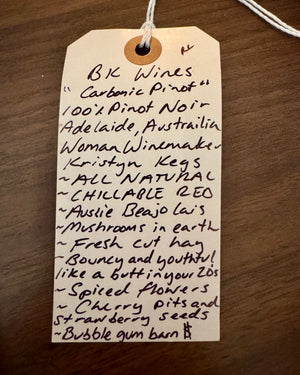 BK Wines
"Carbonic Pinot"
100% Pinot Noir
Adelaide, Austrailia
Woman Winemaker
Kristyn Kegs
~ALL NATURAL
~CHILLABLE RED
~Aussie Beajolais
~Mushrooms in earth
~Fresh cut hay
~Bouncy and youthful
like a butt in your 20s
~Spiced flowers
~Cherry pits and
strawberry seeds
~Bubble gum barn